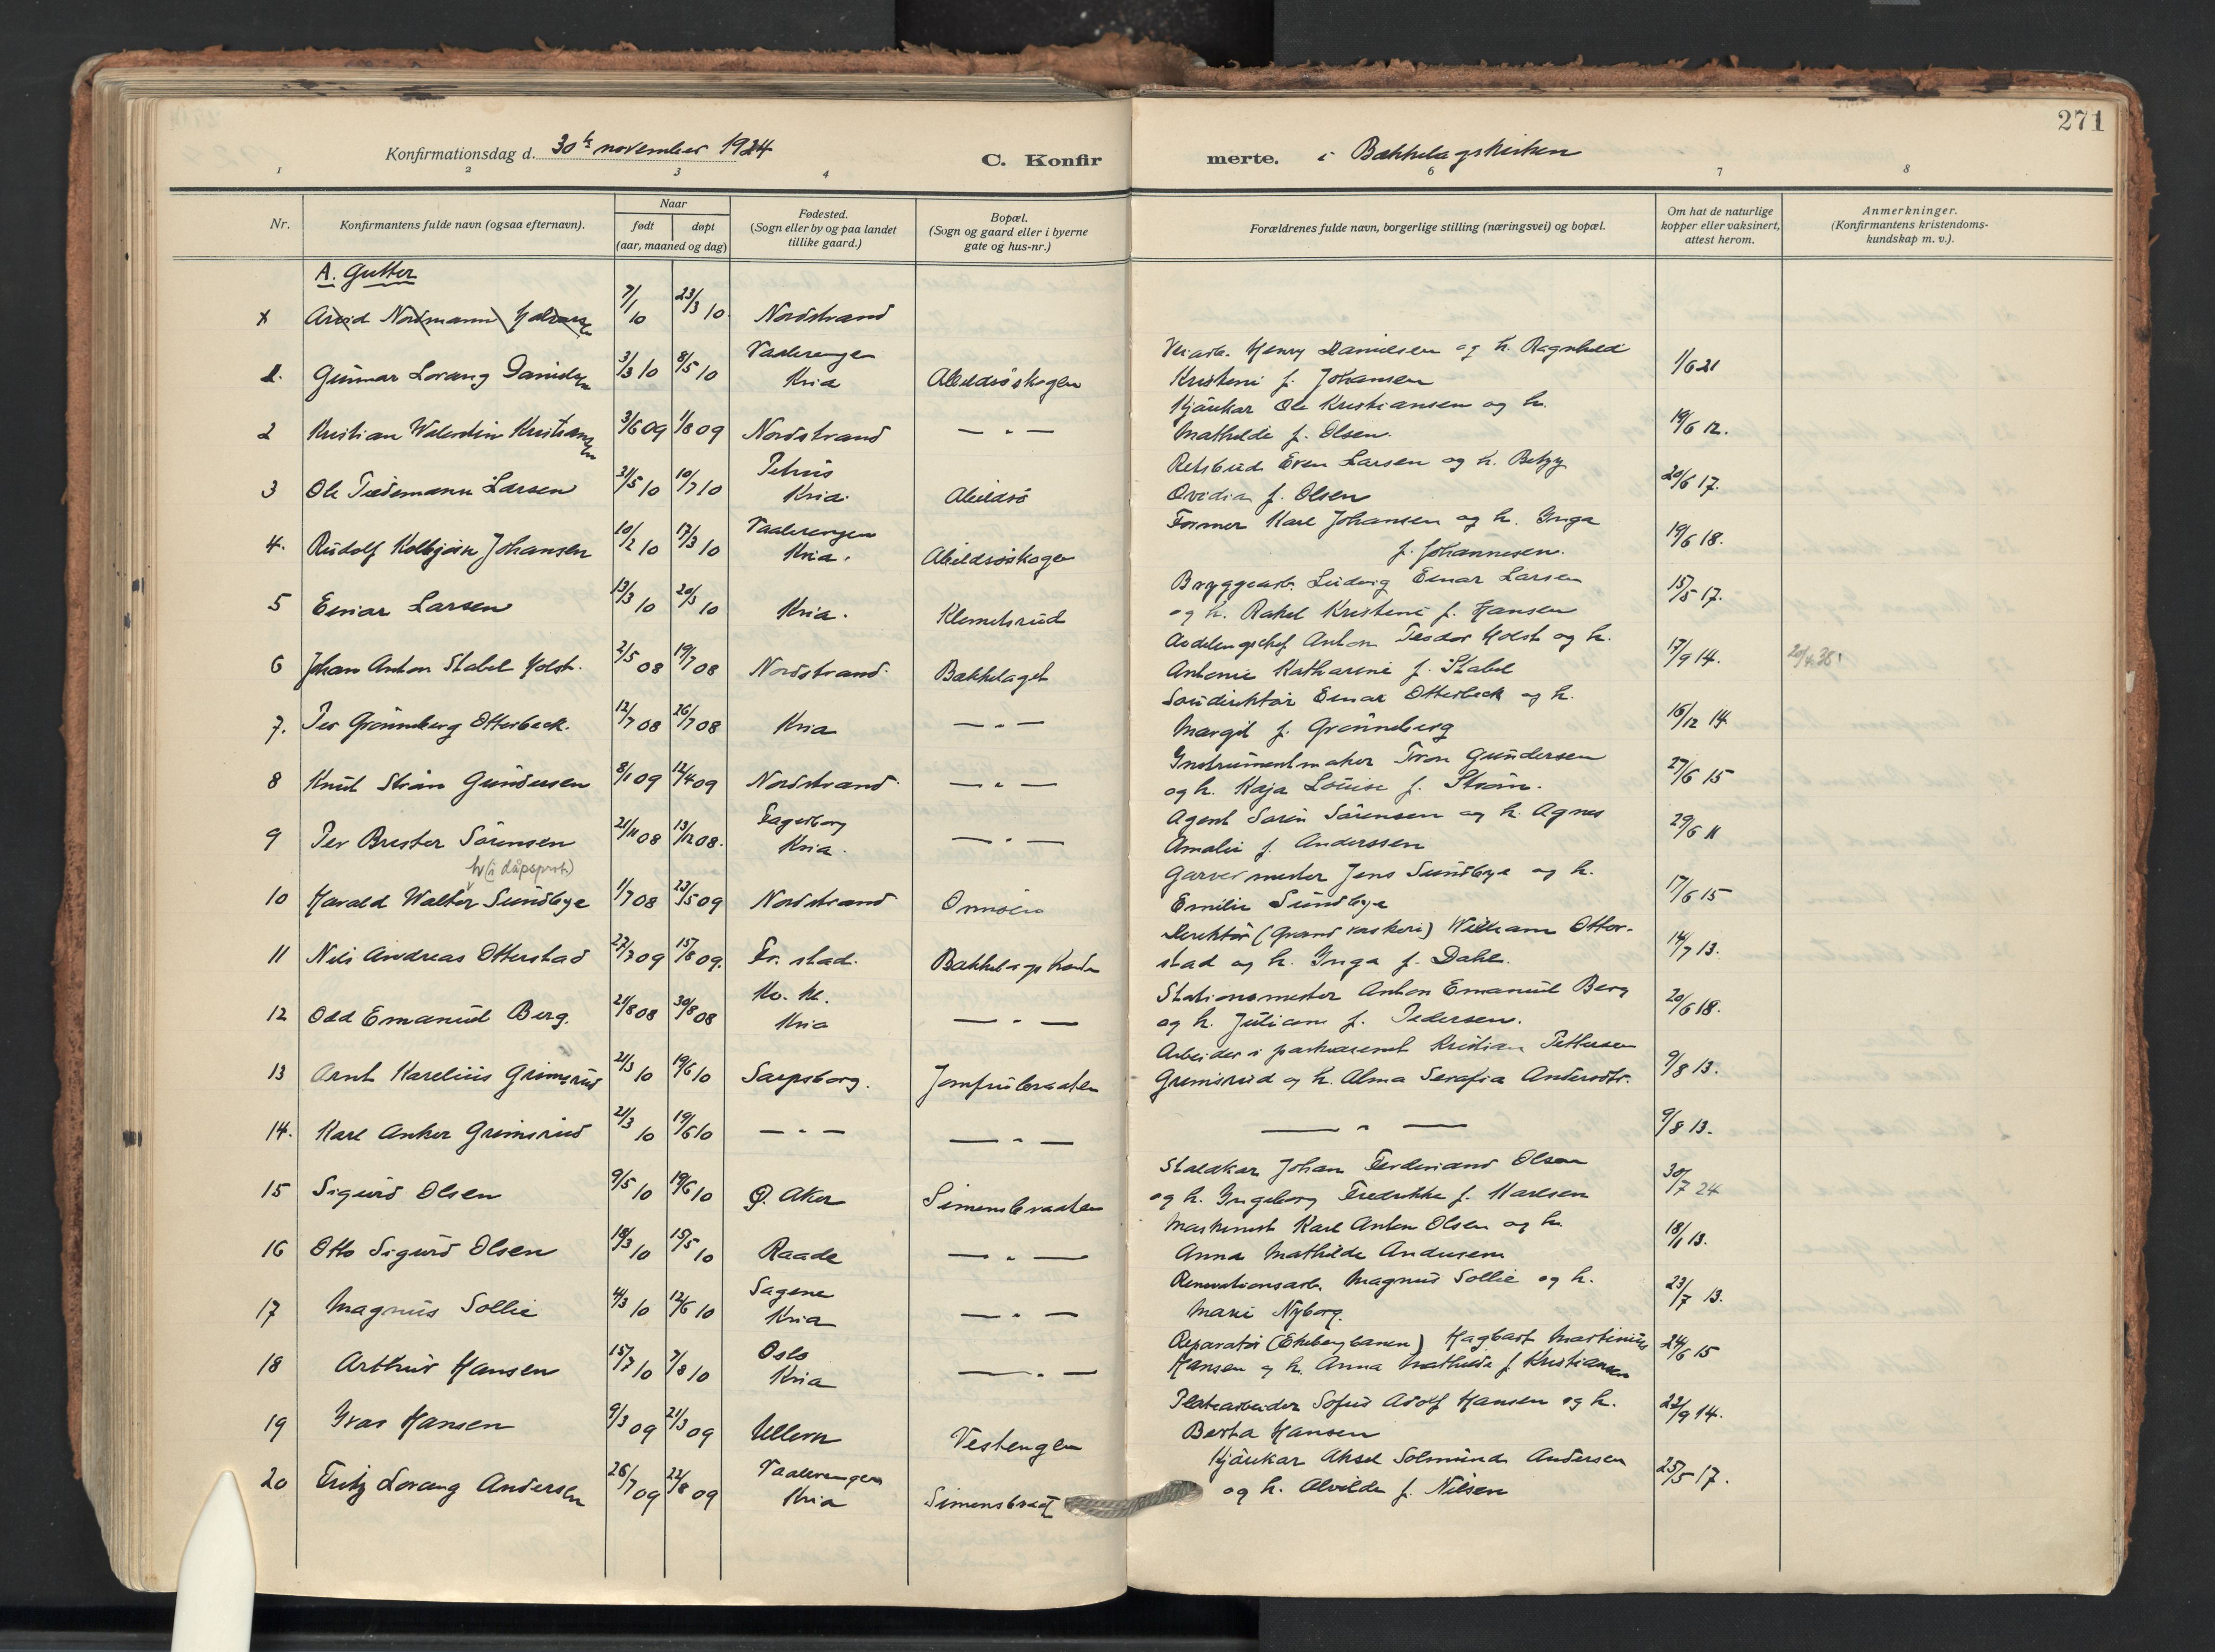 271
Konfirmationsdag d. 30te november 1924 C. Konfirmerte. i Bækkelagskirken
1 2 3 4 6 7 8
Nr. Konfirmantens fulde navn (ogsaa efternavn). Naar født døpt (aar, maaned og dag) Fødested. (Sogn eller by og paa landet tillike gaard.) Bopæl. (Sogn og gaard eller i byerne gate og hus-nr.) Forældrenes fulde navn, borgerlige stilling (næringsvei) og bopæl. Om hat de naturlige kopper eller vaksinert, attest herom. Anmerkninger. (Konfirmantens kristendoms-kundskap m. v.).
A. Gutter
x Arvid Nordmann 7/1 10 23/3 10 Nordstrand
1. Gunnar Lorang Danielsen 3/3 10 8/5 10 Vaalerengen Kria Abildsöskogen Veiarb. Henry Danielsen og h. Ragnhild Kristine f. Johansen 1/6 21
2 Kristian Walentin Kristiansen 3/6 09 1/8 09 Nordstrand — " — Kjörekar Ole Kristiansen og h. Mathilde f. Olsen. 19/6 12.
3 Ole Tiedemann Larsen 31/5 10 10/7 10 Petrus Kria. Abildsö Retsbud Even Larsen og h. Betzy Ovidia f. Olsen 20/6 17.
4. Rudolf Kolbjörn Johansen 10/2 10 17/3 10 Vaalerengen Kria. Abildsöskogen Former Karl Johansen og h. Inga f. Johannesen. 19/6 18.
5 Einar Larsen 13/3 10 20/3 10 Kria. Klemetsrud Bryggearb. Ludvig Einar Larsen og h. Rakel Kristine f. Hansen 15/5 17.
6 Johan Anton Stabel Holst. 2/5 08 19/7 08 Nordstrand Bækkelaget Avdelingschef Anton Teodor Holst og h. Antonie Katharine f. Stabel 17/9 14.
7. Per Grönneberg Otterbeck. 12/7 08 26/7 08 Kria — " — direktör Einar Otterbeck og h. Margit f. Grönneberg 16/12 14
8 Knut Ström Gundersen 8/1 09 12/4 09 Nordstrand — " — Instrumentmaker Tron Gundersen og h. Kaja Louise f. Ström. 27/6 15
9 Per Brester Sörensen 21/11 08 13/12 08. Fagerborg Kria. — " — Agent Sören Sörensen og h. Agnes Amalie f. Anderssen 29/6 11
h (i dåpsprot)
10 Harald Walter Sundbye 1/7 08 23/5 09 Nordstrand Ormöen Garvermester Jens Sundbye og h. Emilie Sundbye 17/6 15
11 Nils Andreas Otterstad 27/7 09 15/8 09. Fr. stad. Direktör (Grand vaskeri) William Otterstad og h. Inga f. Dahl. 14/7 13.
12 Odd Emanuel Berg. 21/8 08 30/8 08 Kria — " — Stationsmester Anton Emanuel Berg og h. Juliane f. Pedersen. 20/6 18.
13 Arnt Karelius Grimsrud 21/3 10 19/6 10 Sarpsborg. Jomfrubraaten Arbeider i parkvæsenet Kristian Pettersen Grimsrud og h. Alma Serafia Andersdtr. 9/8 13.
14. Karl Anker Grimsrud 21/3 10 19/6 10 — " — — " — — " — 9/8 13.
15 Sigurd Olsen 9/5 10 19/6 10 Ø. Aker Simensbraaten Staldkar Johan Ferdinand Olsen og h. Ingeborg Fredrikke f. Karlsen 30/7 24
16 Otto Sigurd Olsen 18/3 10 15/5 10 Raade — " — Maskinist Karl Anton Olsen og h. Anna Mathilde Andersen 18/11 13.
17 Magnus Sollie 4/3 10 12/6 10 Sagene Kria — " — Renovationsarb. Magnus Sollie og h. Marie Nyborg. 23/7 13.
18 Arthur Hansen 15/7 10 7/8 10 Oslo Kria — " — Reparatör (Ekebergbanen) Hagbart Martinius Hansen og h. Anna Mathilde f. Kristiansen 24/6 15
19 Ivar Hansen 9/3 09 21/3 09 Ullern Vestengen Platearbeider Sofus Adolf Hansen og h. Berta Hansen 22/9 14.
20 Fritz Lorang Andersen 26/7 09 22/8 09 Vaalerengen Kria Simensbraat Kjörekar Aksel Solmund Andersen og h. Alvilde f. Nilsen 25/5 17.